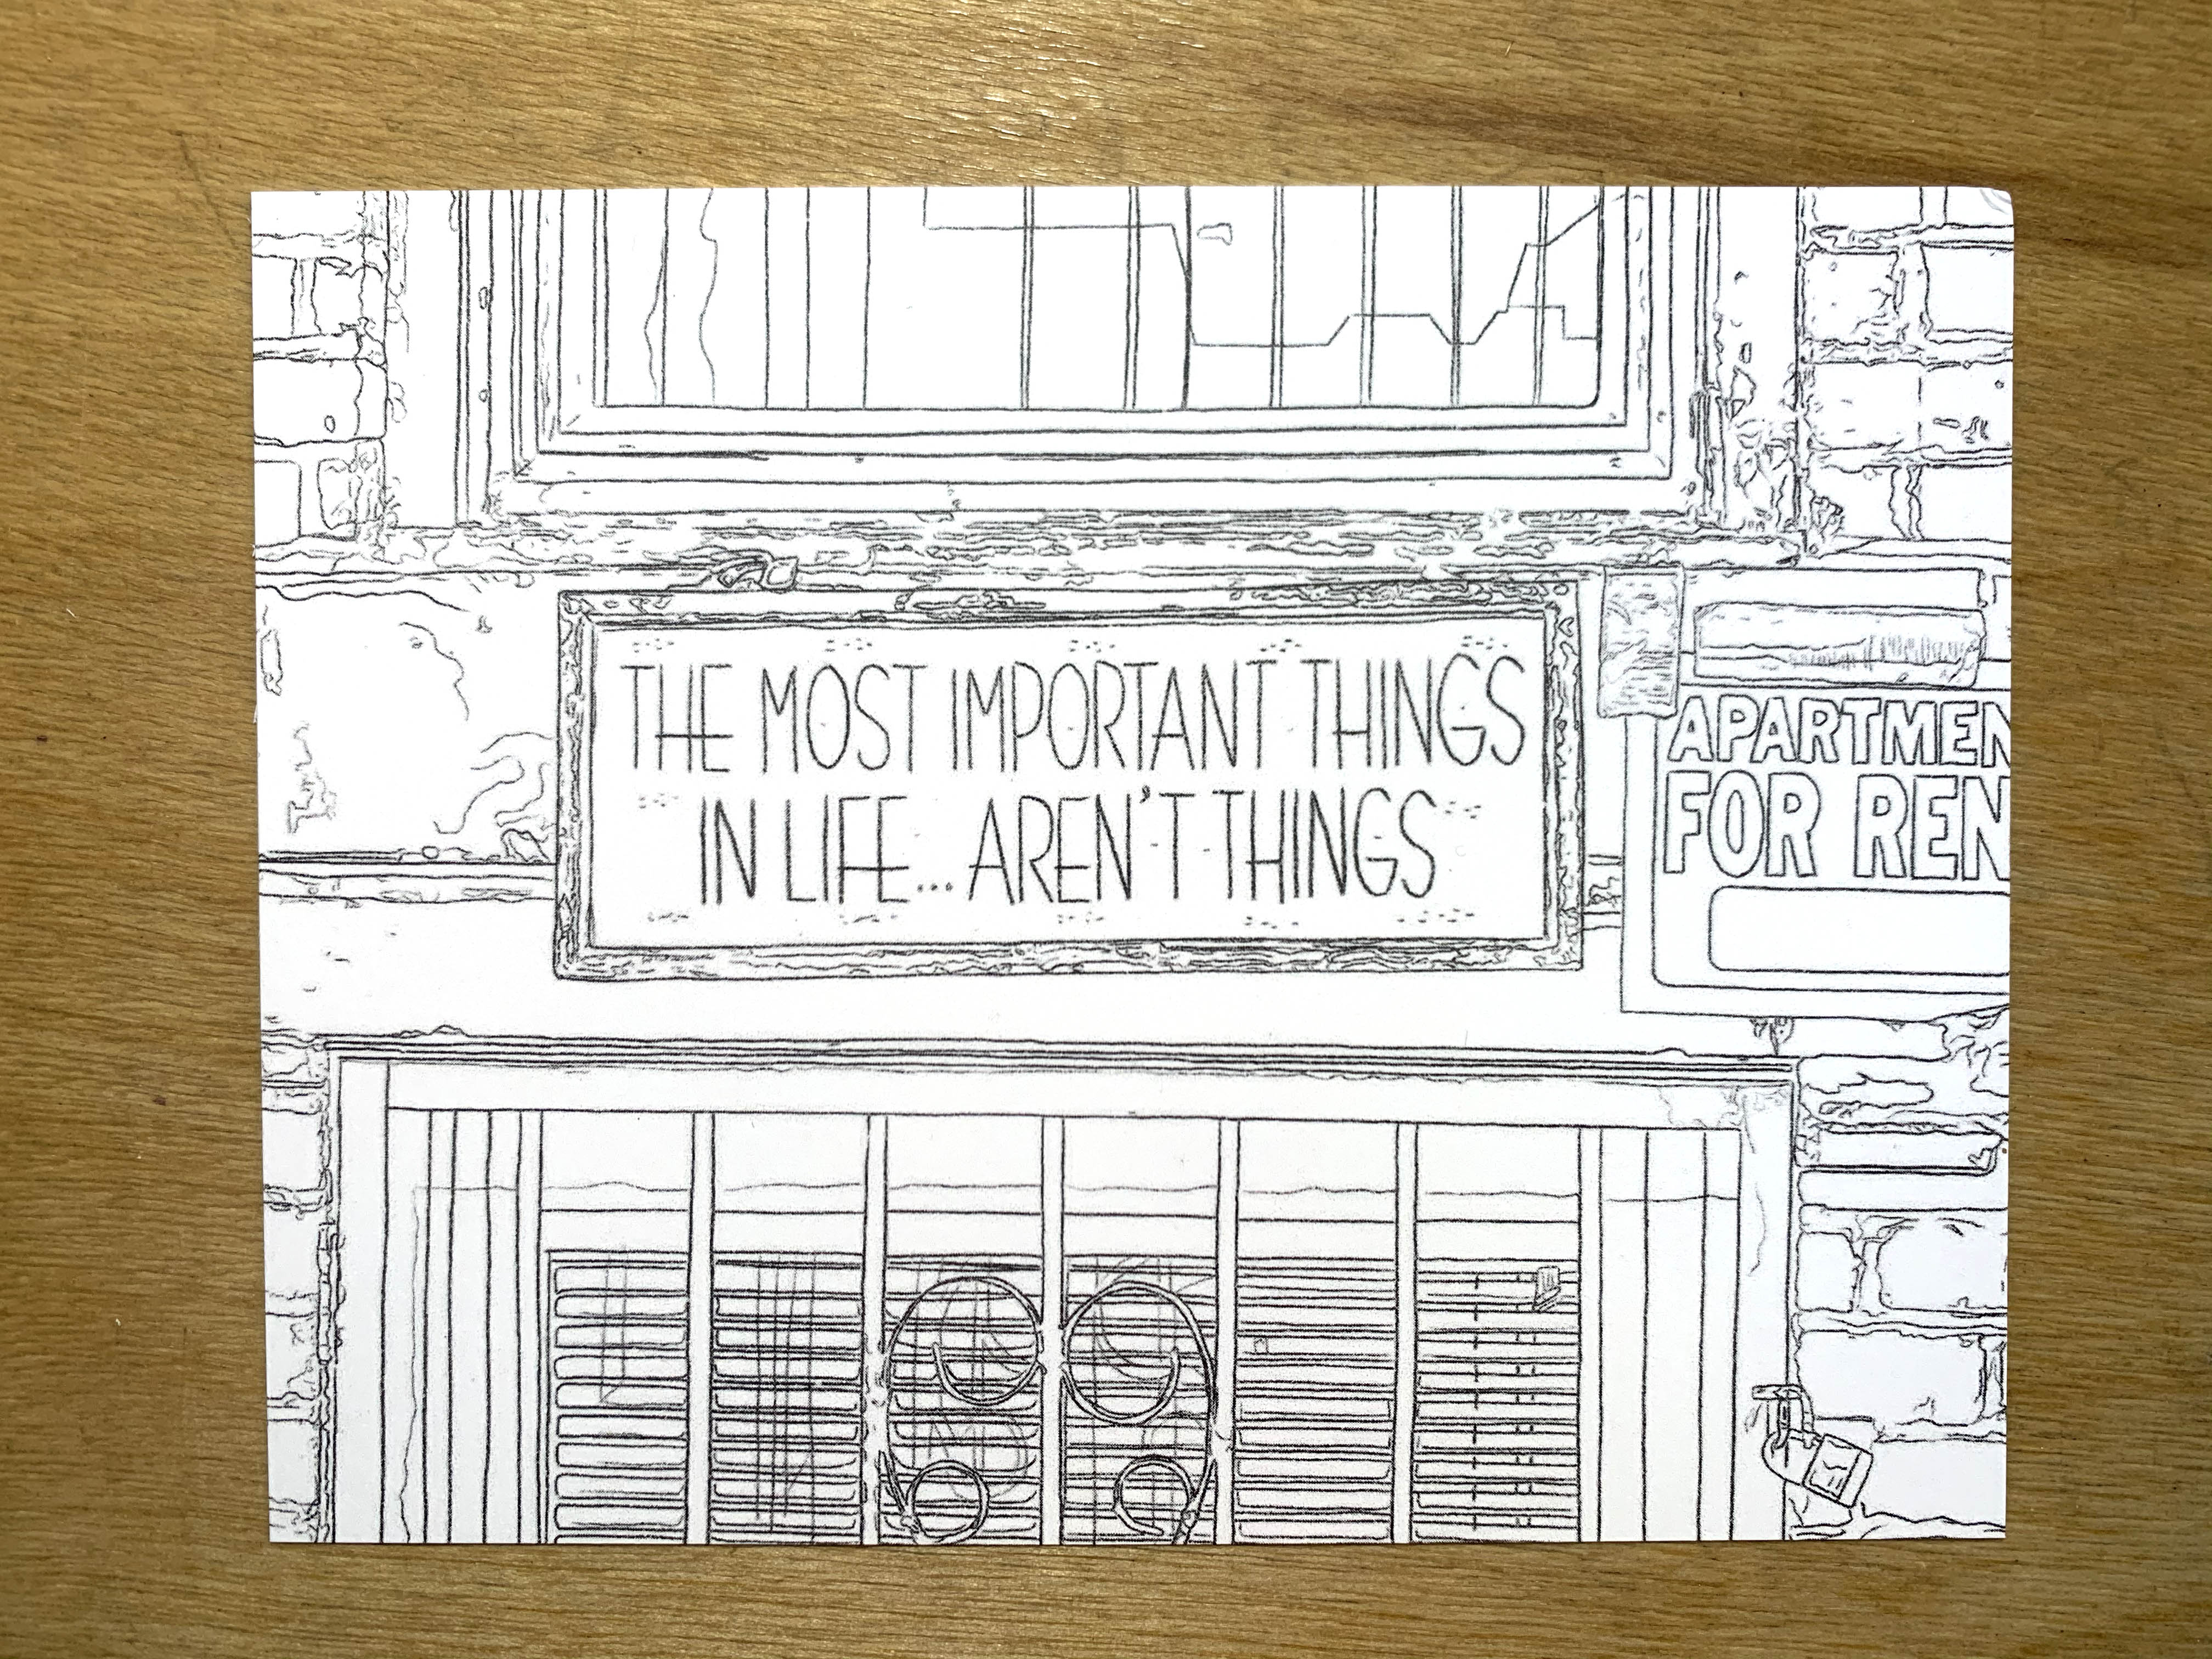 THE MOST IMPORTANT THINGS
IN LIFE... AREN'T THINGS
APARTMEN
FOR REN